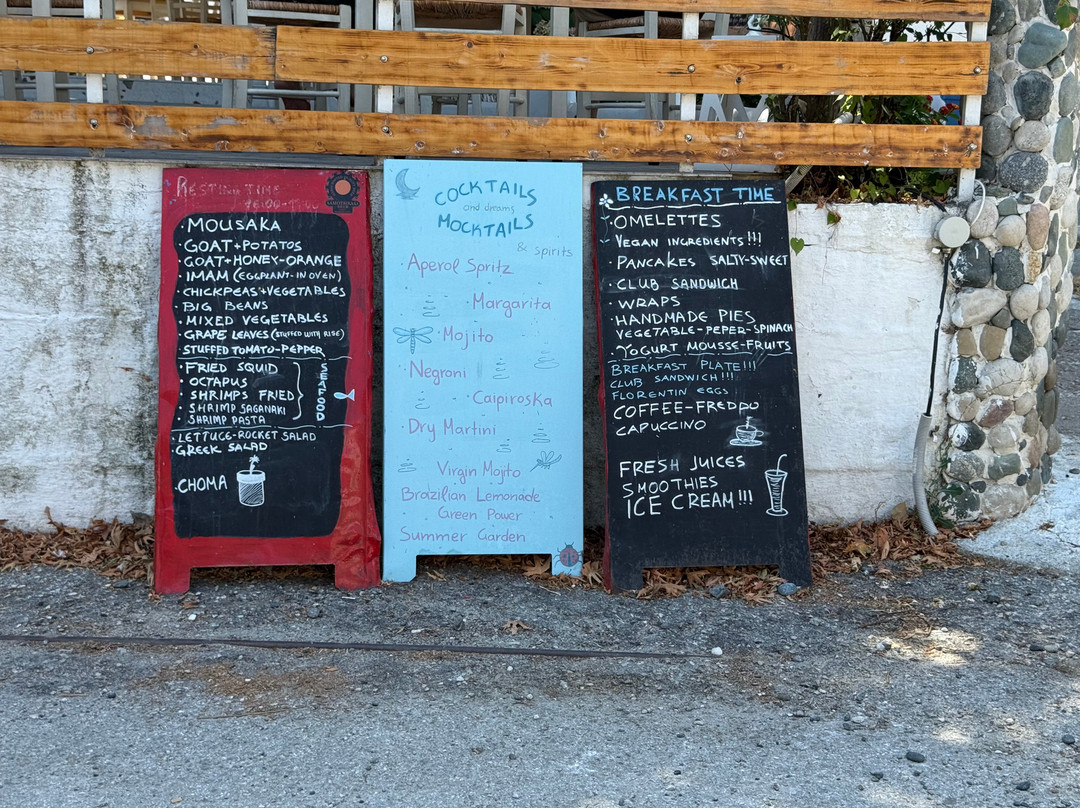 RESTING TIME
SAMOTHRAKI
· MOUSAKA
· GOAT+POTATOS
· GOAT+HONEY-ORANGE
· IMAM (EGGPLANT-IN OVEN)
· CHICKPEAS+VEGETABLES
· BIG BEANS
· MIXED VEGETABLES
· GRAPE LEAVES (STUFFED WITH RISE)
STUFFED TOMATO-PEPPER
· FRIED SQUID
· OCTAPUS
· SHRIMPS FRIED
· SHRIMP SAGANAKI
· SHRIMP PASTA
SEAFOOD
· LETTUCE-ROCKET SALAD
· GREEK SALAD
· CHOMA
COCKTAILS
and dreams
MOCKTAILS
& spirits
· Aperol Spritz
· Margarita
· Mojito
· Negroni
· Caipiroska
· Dry Martini
Virgin Mojito
Brazilian Lemonade
Green Power
Summer Garden
BREAKFAST TIME
· OMELETTES
· VEGAN INGREDIENTS!!!
· PANCAKES SALTY-SWEET
· CLUB SANDWICH
· WRAPS
· HANDMADE PIES
VEGETABLE-PEPER-SPINACH
· YOGURT MOUSSE-FRUITS
BREAKFAST PLATE!!!
CLUB SANDWICH!!!
FLORENTIN EGGS
COFFEE-FREDDO
CAPUCCINO
FRESH JUICES
SMOOTHIES
ICE CREAM!!!